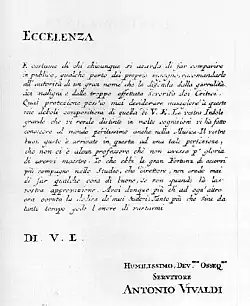 ECCELENZA
È costume di chi chiunque si azarda di far comparire
in publico, qualche parto del proprio ingegno, raccomandarlo
all'autorità di un gran nome che lo difenda dalla garrulità
dei maligni e dalla troppo affettata severità dei Critici.
Qual protezione posso mai desiderare maggiore à queste
mie deboli composizioni di quella di V. E. La vostra Indole
grande che vi rende distinto in molte cognizioni vi hà fatto
conoscere al mondo peritissimo anche nella Musica. Il vostro
buon gusto è arrivato in questa ad una tale perfezione,
che non ci è alcun professore che non avesse p' gloria
di avervi maestro. Io che ebbi la gran Fortuna di esservi
più compagno nello Studio, che direttore, non credo mai
di far qualche cosa di buono, se non quando hà la
vostra approvazione.
tanto tempo gode l'onore di vantarmi
DI V. E.
HUMILISSIMO, DEV.mo OSSEQ.mo
SERVITORE
ANTONIO VIVALDI